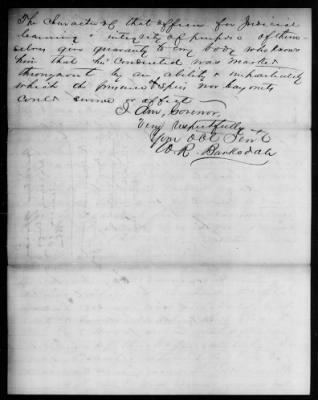 The Character of that officer for Judicial
learning & integrity of purpose of them-
selves give guaranty to any body who knows
him that his Conduct was marked
throughout by an ability & impartiality
which the presence of spies nor bayonets
could swerve or affect
I Am, Govenor,
Very Respectfully
Your Obt Servt
W. R. Barksdale